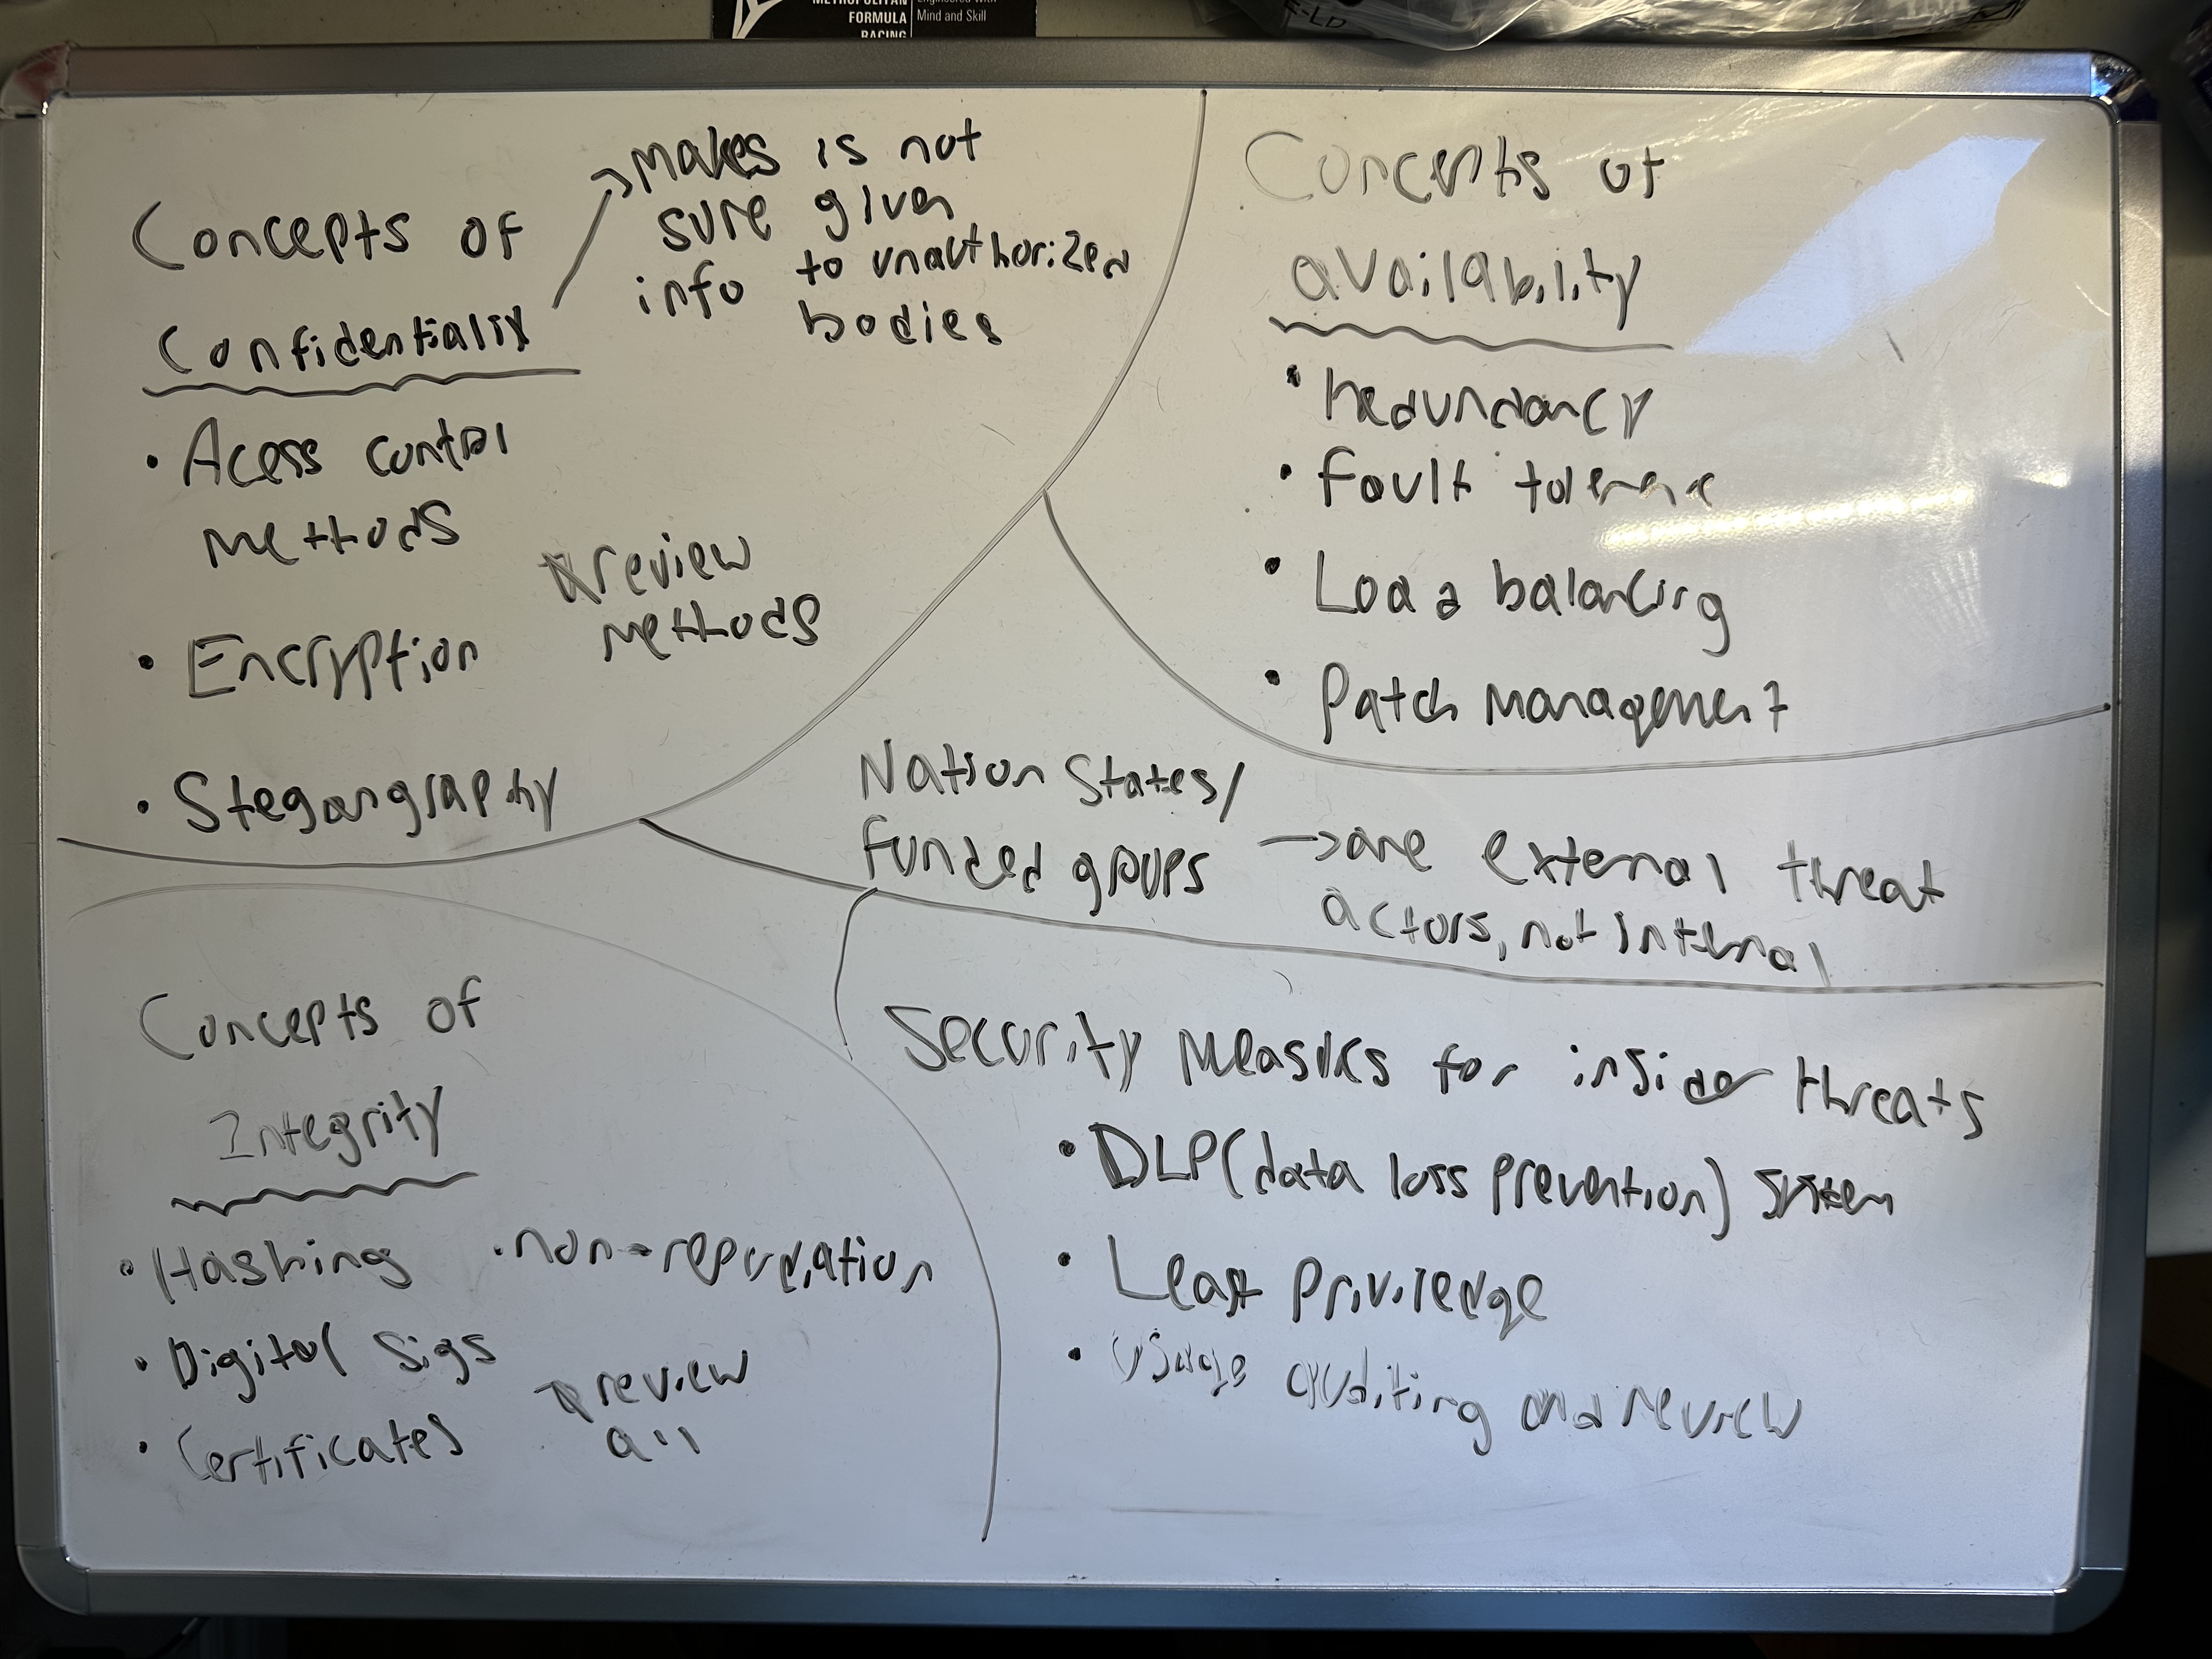 METROPOLITAN
FORMULA
RACING
Engineered with
Mind and Skill
E-LD
Concepts of
Confidentiality
makes is not
sure given
info to unauthorized
bodies
• Acess control
methods
• Encryption
review
methods
• Stegangraphy
Concepts of
availability
• Redundancy
• Fault tolerance
• Load balancing
• Patch management
Nation States/
funded groups
→ are external threat
actors, not internal
Concepts of
Integrity
• Hashing • non-repudiation
• Digital sigs
• Certificates
review
all
Security measures for insider threats
• DLP(data loss prevention) system
• Least priviledge
• Usage auditing and review